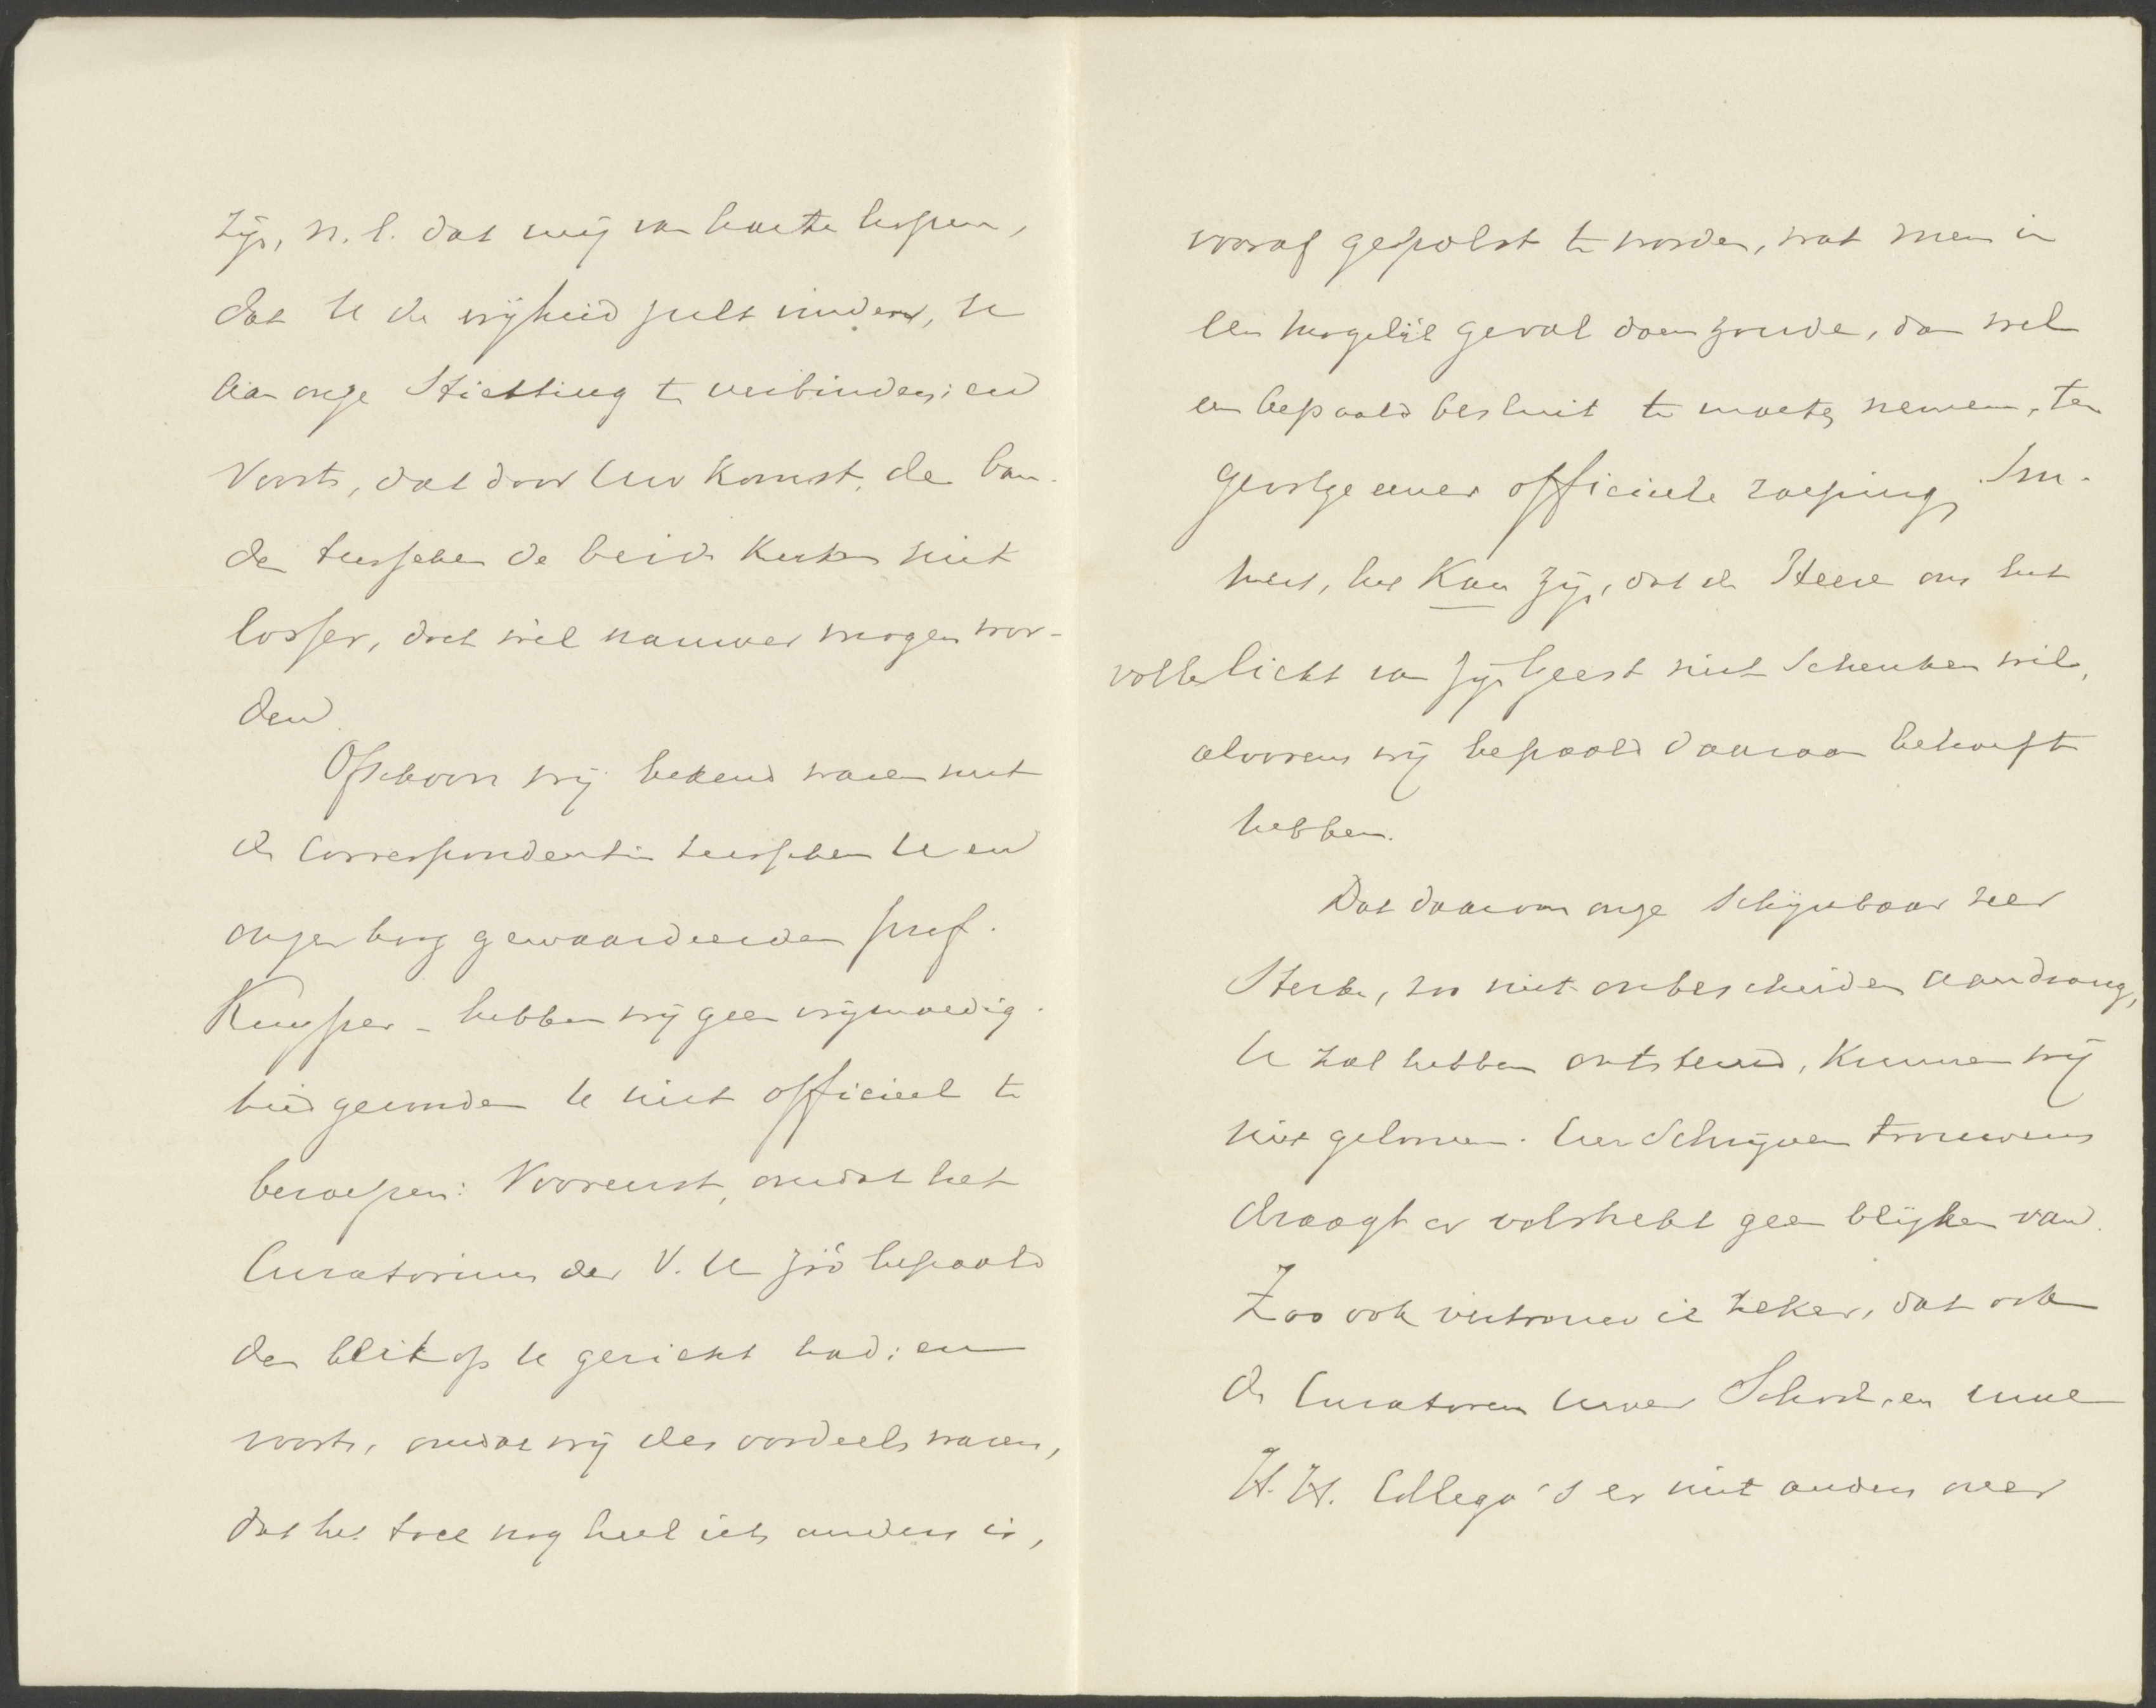 zijn, n.l. dat wij van harte hopen,
dat U de vrijheid zult vinden, U
aan onze Stichting te verbinden; en
voorts, dat door Uw komst, de ban-
den tusschen de beide Kerken niet
losser, doch wèl nauwer mogen wor-
den.
Ofschoon wij bekend waren met
de Correspondentie tusschen U en
onzen hoog gewaardeerden prof.
Kuyper - hebben wij geen vrijmoedig-
heid gevonden U niet officieel te
beroepen: Vooreerst, omdat het
Curatorium der V. U zóó bepaald
den blik op U gericht had; en
voorts, omdat wij des oordeels waren,
dat het toch nog heel iets anders is,
vooraf gepolst te worden, wat men in
een mogelijk geval doen zoude, dan wel
een bepaald besluit te moeten nemen, ten
gevolge eener officieele roeping. Im-
mers, het kan zijn, dat de Heere ons het
volle licht van zijn Geest niet schenken wil,
alvorens wij bepaald daaraan behoefte
hebben.
Dat daarom onze schijnbaar zeer
sterke, zoo niet onbescheiden aandrang,
U zal hebben ontstemd, kunnen wij
niet gelooven. Uw schrijven trouwens
draagt er volstrekt geen blijken van.
Zoo ook vertrouw ik zeker, dat ook
de Curatoren Uwer School, en Uwe
H.H. Collega's er niet anders over